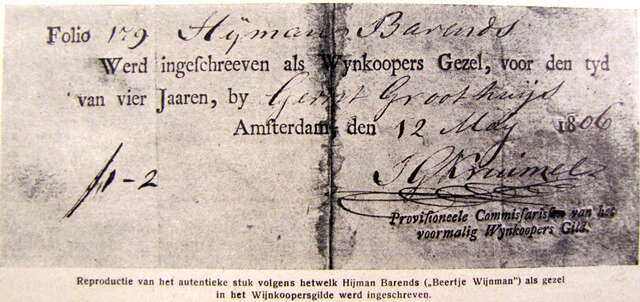 Folio 179 Hijman Barends
Werd ingeschreeven als Wynkoopers Gezel, voor den tyd
van vier Jaaren, by Gerrit Groothuijs
Amsterdam, den 12 May 1806
ƒ1-2
JGKruimel
Provisioneele Commissarissen van het
voormalig Wynkoopers Gild.
Reproductie van het autentieke stuk volgens hetwelk Hijman Barends („Beertje Wijnman”) als gezel
in het Wijnkoopersgilde werd ingeschreven.